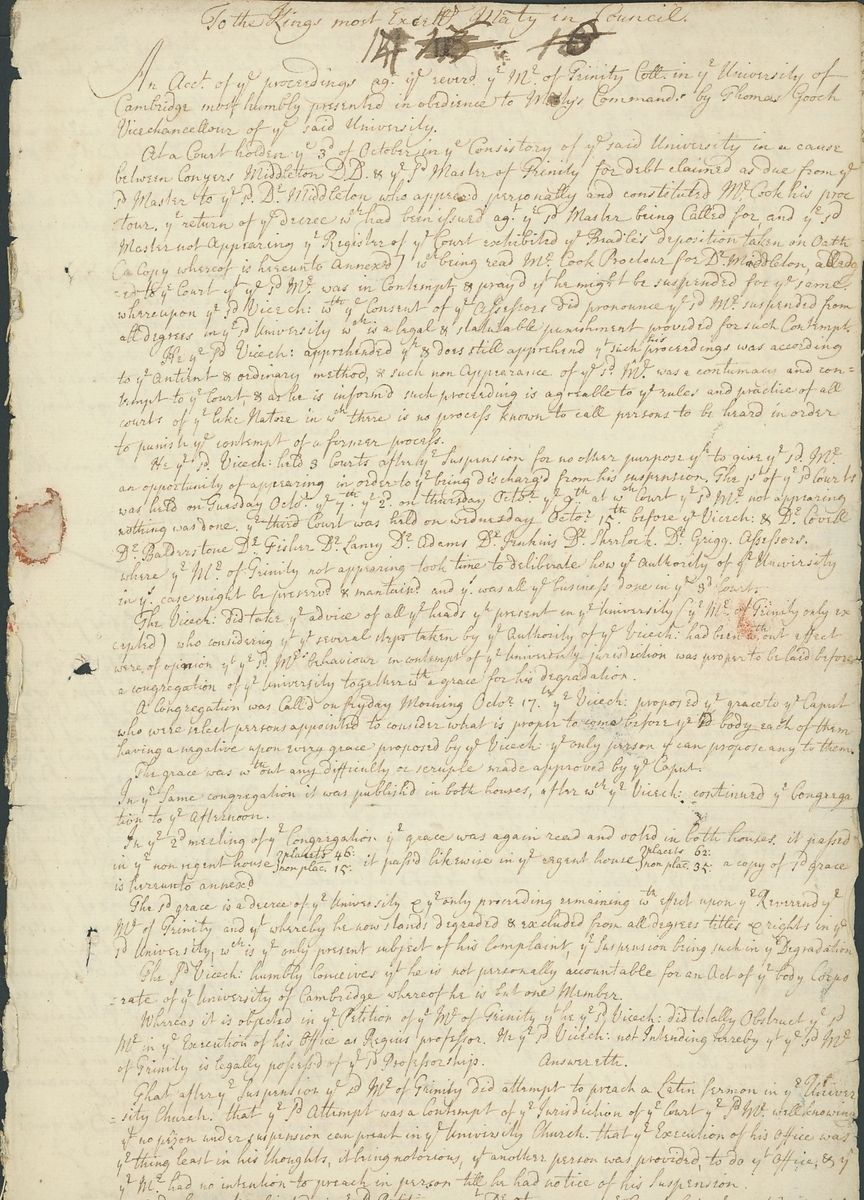 To the Kings most Excellt Maty in Council.
14 13 16
An Acct. of ye proceedings agt. ye reverd ye Mr. of Trinity Coll. in ye University of
Cambridge most humbly presented in obedience to Matys Commands by Thomas Gooch
Vicechancellour of ye said University.
At a Court holden ye 3d of October in ye Consistory of ye said University in a cause
between Conyers Middleton D.D. & ye sd Master of Trinity for debt claimed as due from ye
sd Master to ye sd. Dr. Middleton who appeard personally and constituted Mr. Cook his proc
tour. ye return of ye decree wch had been issued agt. ye sd Master being Called for, and ye sd
Master not Appearing ye Register of ye Court exhibited ye Beadle's deposition taken on Oath
(a Copy whereof is hereunto Annexed) wch being read Mr. Cook Proctour for Dr. Middleton, alledg
=ed to ye Court yt ye sd Mr. was in Contempt, & prayd yt he might be suspended for ye same
whereupon ye sd Vicech: wth ye Consent of ye Assessors did pronounce ye sd Mr. suspended from
all degrees in ye sd University wch is a legal & statutable punishment provided for such Contempt.
He ye sd Vicech: apprehended yn & does still apprehend yt such his proceedings was according
to ye Antient & ordinary method, & such non Appearance of ye sd. Mr. was a contumacy and con=
tempt to ye Court, & as he is informd such proceeding is agreable to ye rules and practice of all
courts of ye like Nature in wch there is no process known to call persons to be heard in order
to punish ye contempt of a former process.
He ye sd. Vicech: held 3 Courts after ye Suspension for no other purpose yn to give ye sd. Mr.
an opportunity of appearing in order to ye being dischargd from his suspension. The 1st of ye sd Courts
was held on Tuesday Octobr. ye 7th. ye 2d. on thursday Octobr ye 9th. at wch Court ye sd Mr. not appearing
nothing was done. ye third Court was held on wednesday Octobr 15th. before ye Vicech: & Dr. Covell
Dr. Balderstone Dr. Fisher Dr. Laney Dr. Adams Dr. Jenkins Dr. Sherlock. Dr. Grigg. Assessors.
where ye Mr. of Trinity not appearing took time to deliberate how ye Authority of ye University
in ye. case might be preservd & maintaind and ys. was all ye business done in ye 3d Court.
The Vicech: did take ye advice of all ye heads yn present in ye University (ye Mr. of Trinity only ex
cepted) who considering yt ye several steps taken by ye Authority of ye Vicech: had been wthout effect
were of opinion yt ye sd. Mrs. behaviour in contempt of ye University jurisdiction was proper to be laid before
a congregation of ye University together wth a grace for his degradation.
A Congregation was Calld on fryday Morning Octobr 17th. ye Vicech: proposed ye grace to ye Caput
who were select persons appointed to consider what is proper to come before ye sd body each of them
having a negative upon every grace proposed by ye Vicech: ye only person yt can propose any to them.
The grace was wthout any difficulty or scruple made approved by ye Caput.
In ye same congregation it was published in both houses, after wch ye Vicech: continued ye Congrega
tion to ye Afternoon.
In ye 2d meeting of ye Congregation ye grace was again read and voted in both houses. it passed
in ye non regent house placets 46: non plac. 15: it passd likewise in ye regent house placets 62: non plac. 35: a copy of sd grace
is hereunto annexd
The sd grace is a decree of ye University & ye only proceeding remaining wth effect upon ye Reverend ye
Mr of Trinity and yt whereby he now stands degraded & excluded from all degrees titles & rights in ye
sd University, wch is ye only present subject of his Complaint, ye Suspension being sunk in ye Degradation
The sd Vicech: humbly Conceives yt he is not personally accountable for an Act of ye body Corpo
=rate of ye University of Cambridge whereof he is but one Member.
Whereas it is objected in ye Petition of ye Mr of Trinity yt he ye sd Vicech: did totally Obstruct ye sd
Mr in ye Execution of his Office as Regius professor. He ye sd Vicech: not Intending hereby yt ye sd Mr
of Trinity is legally possessd of ye sd Professorship. Answereth.
That after ye Suspension ye sd Mr of Trinity did attempt to preach a Latin sermon in ye Univer
=sity Church. that ye sd Attempt was a Contempt of ye Jurisdiction of ye Court ye sd Mr. well knowing
yt no person under suspension can preach in ye University Church. that ye Execution of his Office was
ye thing least in his thoughts, it being notorious, yt another person was provided to do yt Office, & yt
ye Mr had no intention to preach in person till he had notice of his Suspension.